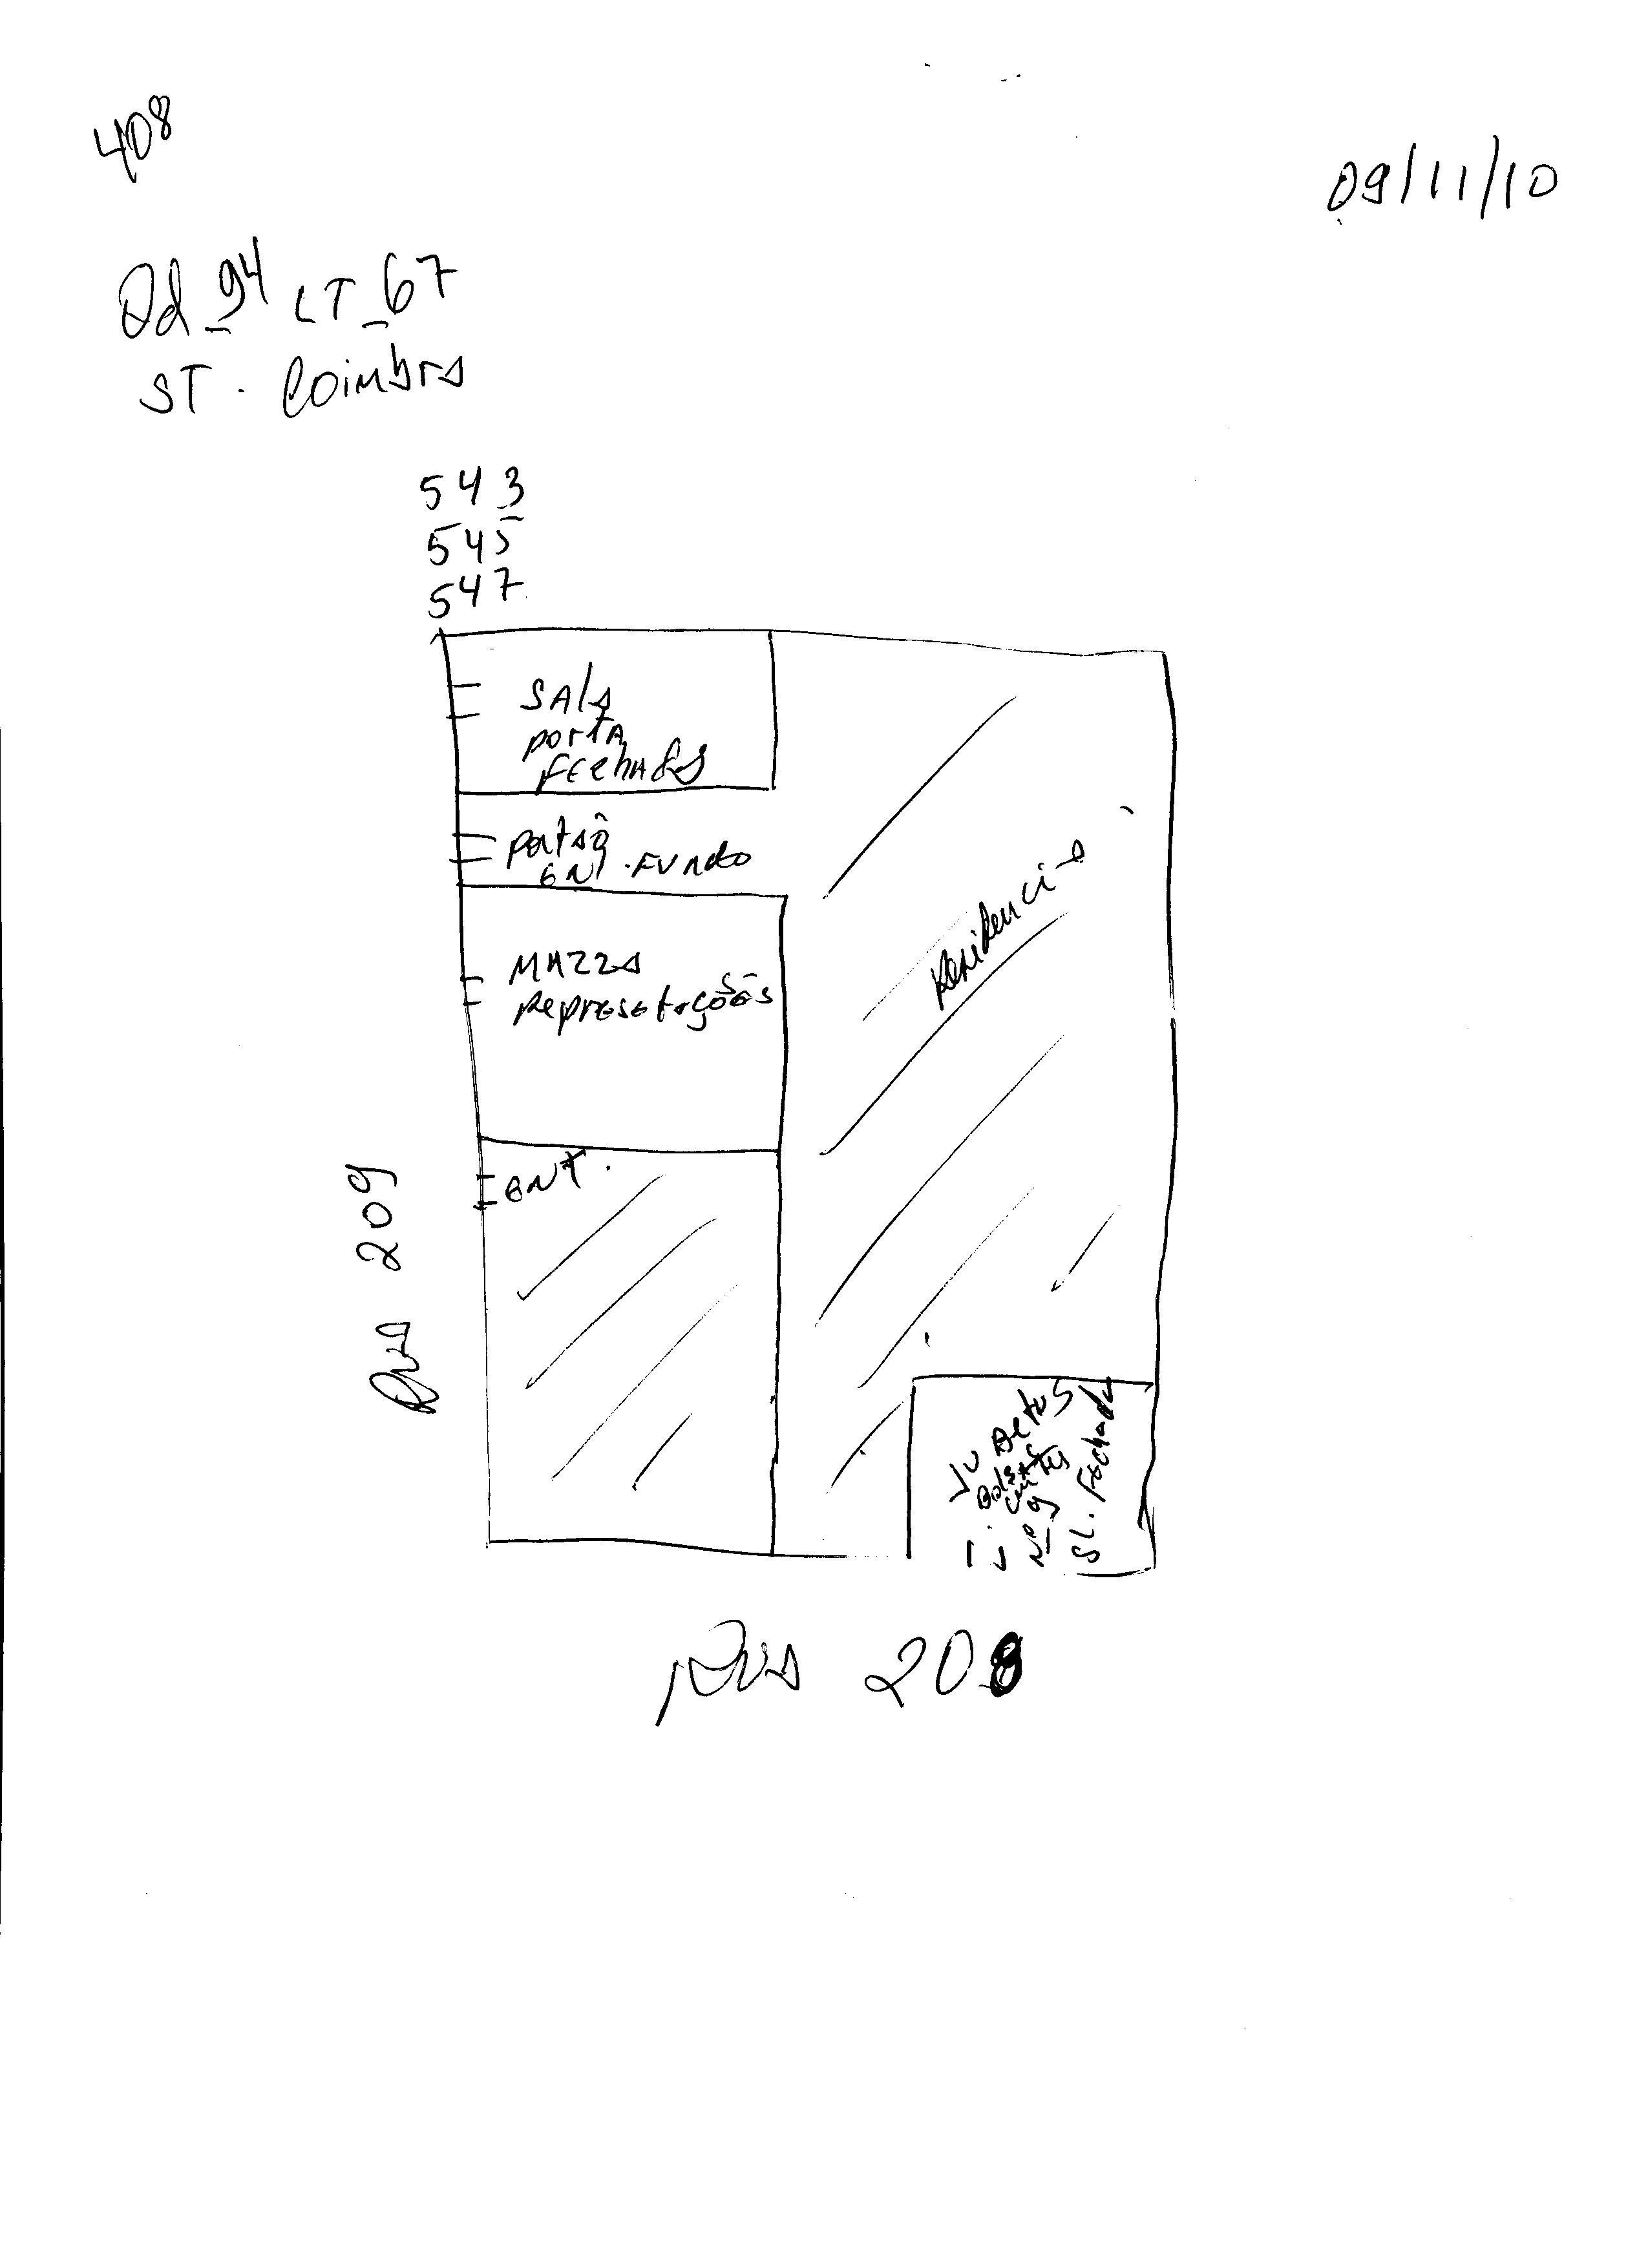 408
09/11/10
Qd_94 LT_67
ST. Coimbra
543
545
547
SALA
PORTA
FEChAdA
portão
ENT. FUNdo
MAZZA
Represetações
ENT.
Residencia
Nº 9
SL. Fechada
Rua 209
Rua 208